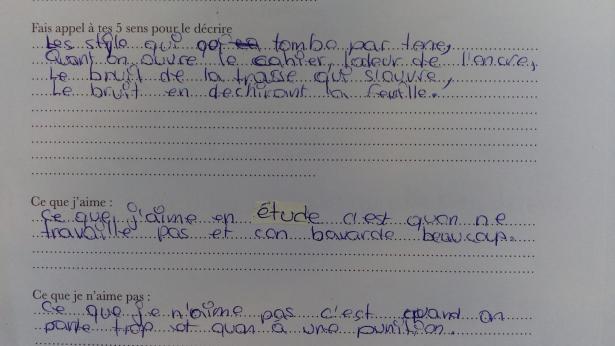 Fais appel à tes 5 sens pour le décrire
Les style qui tombe par terre,
Quant on ouvre le cahier, l'odeur de l'encre,
Le bruit de la trasse qui s'ouvre,
Le bruit en dechirant la feuille.
Ce que j'aime :
Ce que j'aime en étude c'est quon ne
travaille pas et con bavarde beaucoup.
Ce que je n'aime pas :
Ce que je n'aime pas c'est quand on
parle trop et quon a une punition.